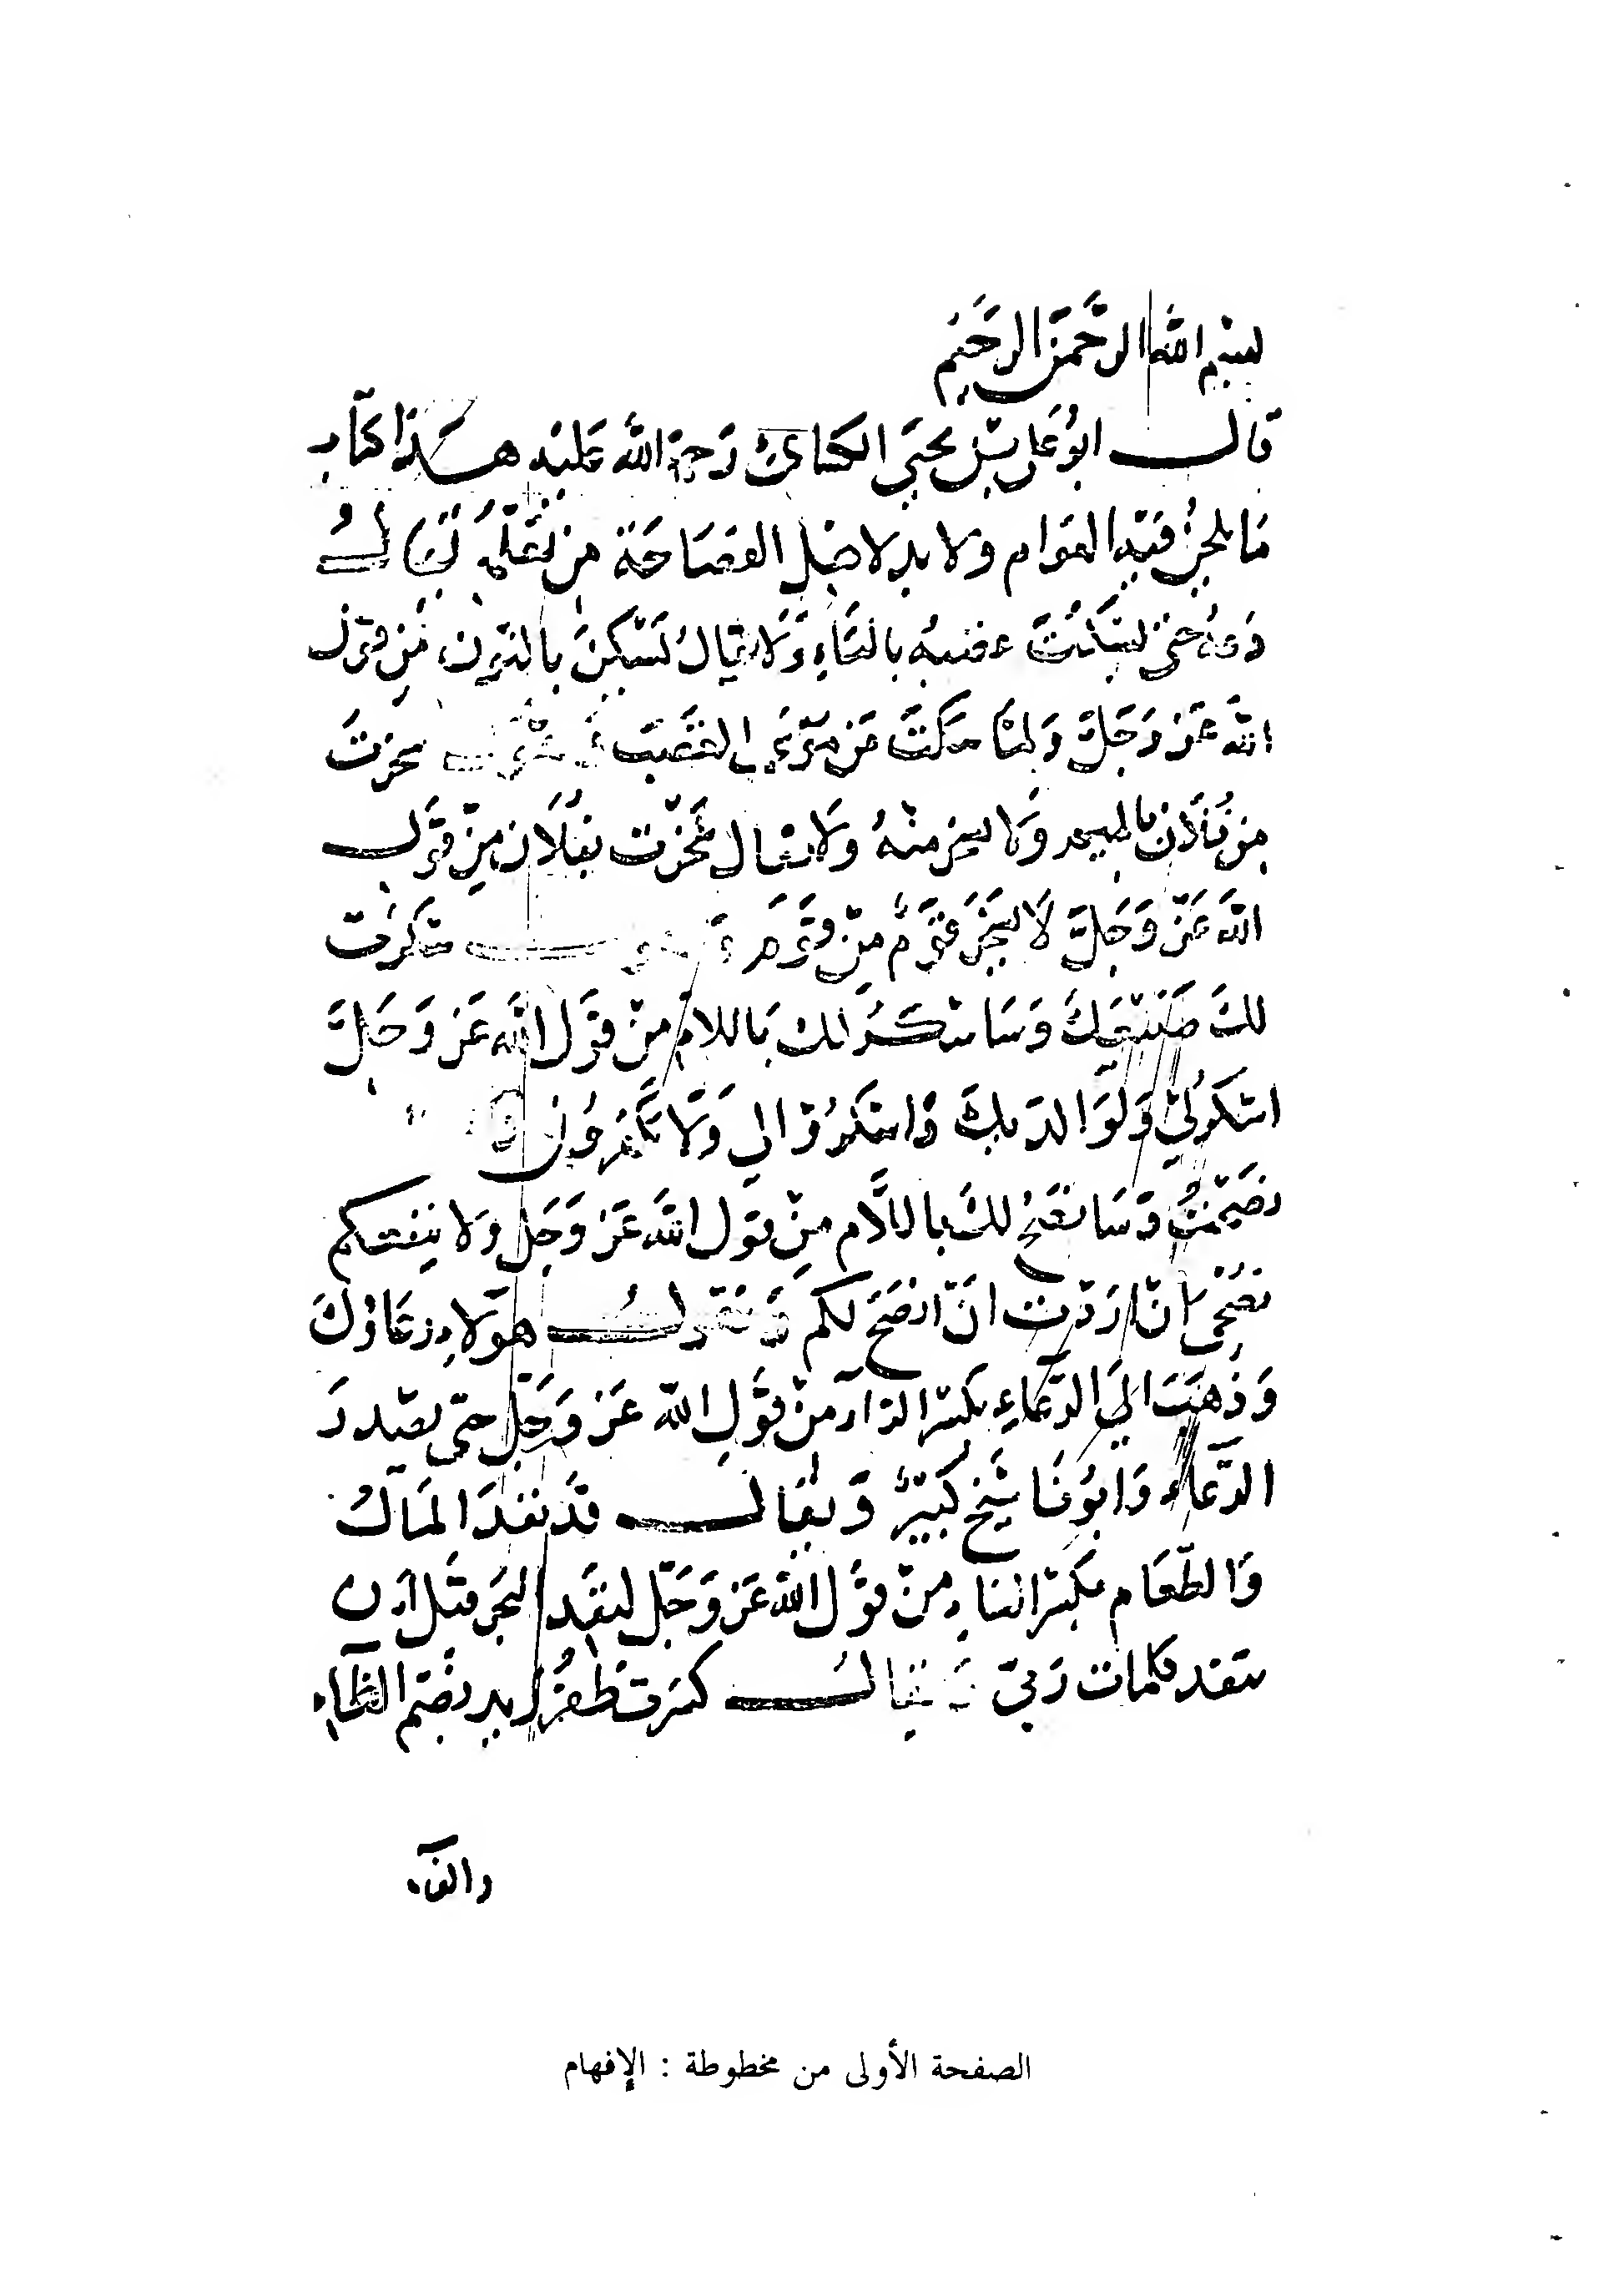 بسم الله الرحمن الرحيم
قال ابو على بن يحيى الكسائى رحمة الله عليه هذا كتاب
ما يلحن فيه العوام ولا بد لاهل الفصاحة من
بالتاء ولا يقال تسكن بالنون من قول
الله عز وجل ولما سكت عن موسى الغضب سخرت
من فلان ولا يقال سخرت بفلان من قول
الله عز وجل لا يسخر قوم من قوم شكرت
لك صنيعك وسا شكر لك باللام من قول الله عز وجل
اشكر لي ولوالديك واشكروا لي ولا تكفرون
نصحت وسا نصح لك باللام من قول الله عز وجل ولا ينفعكم
نصحى ان اردت ان انصح لكم وتقول هولاء رعاؤك
وذهبت الي الرعاء بكسر الراء من قول الله عز وجل حتى يصدر
الرعاء وابونا شيخ كبير ويقال قد نفد المال
والطعام بكسر الفاء من قول الله عز وجل لنفد البحر قبل ان
تنفد كلمات ربي ويقال كسرت ظفر بضم الظاء
والفاء
الصفحة الأولى من مخطوطة : الإفهام